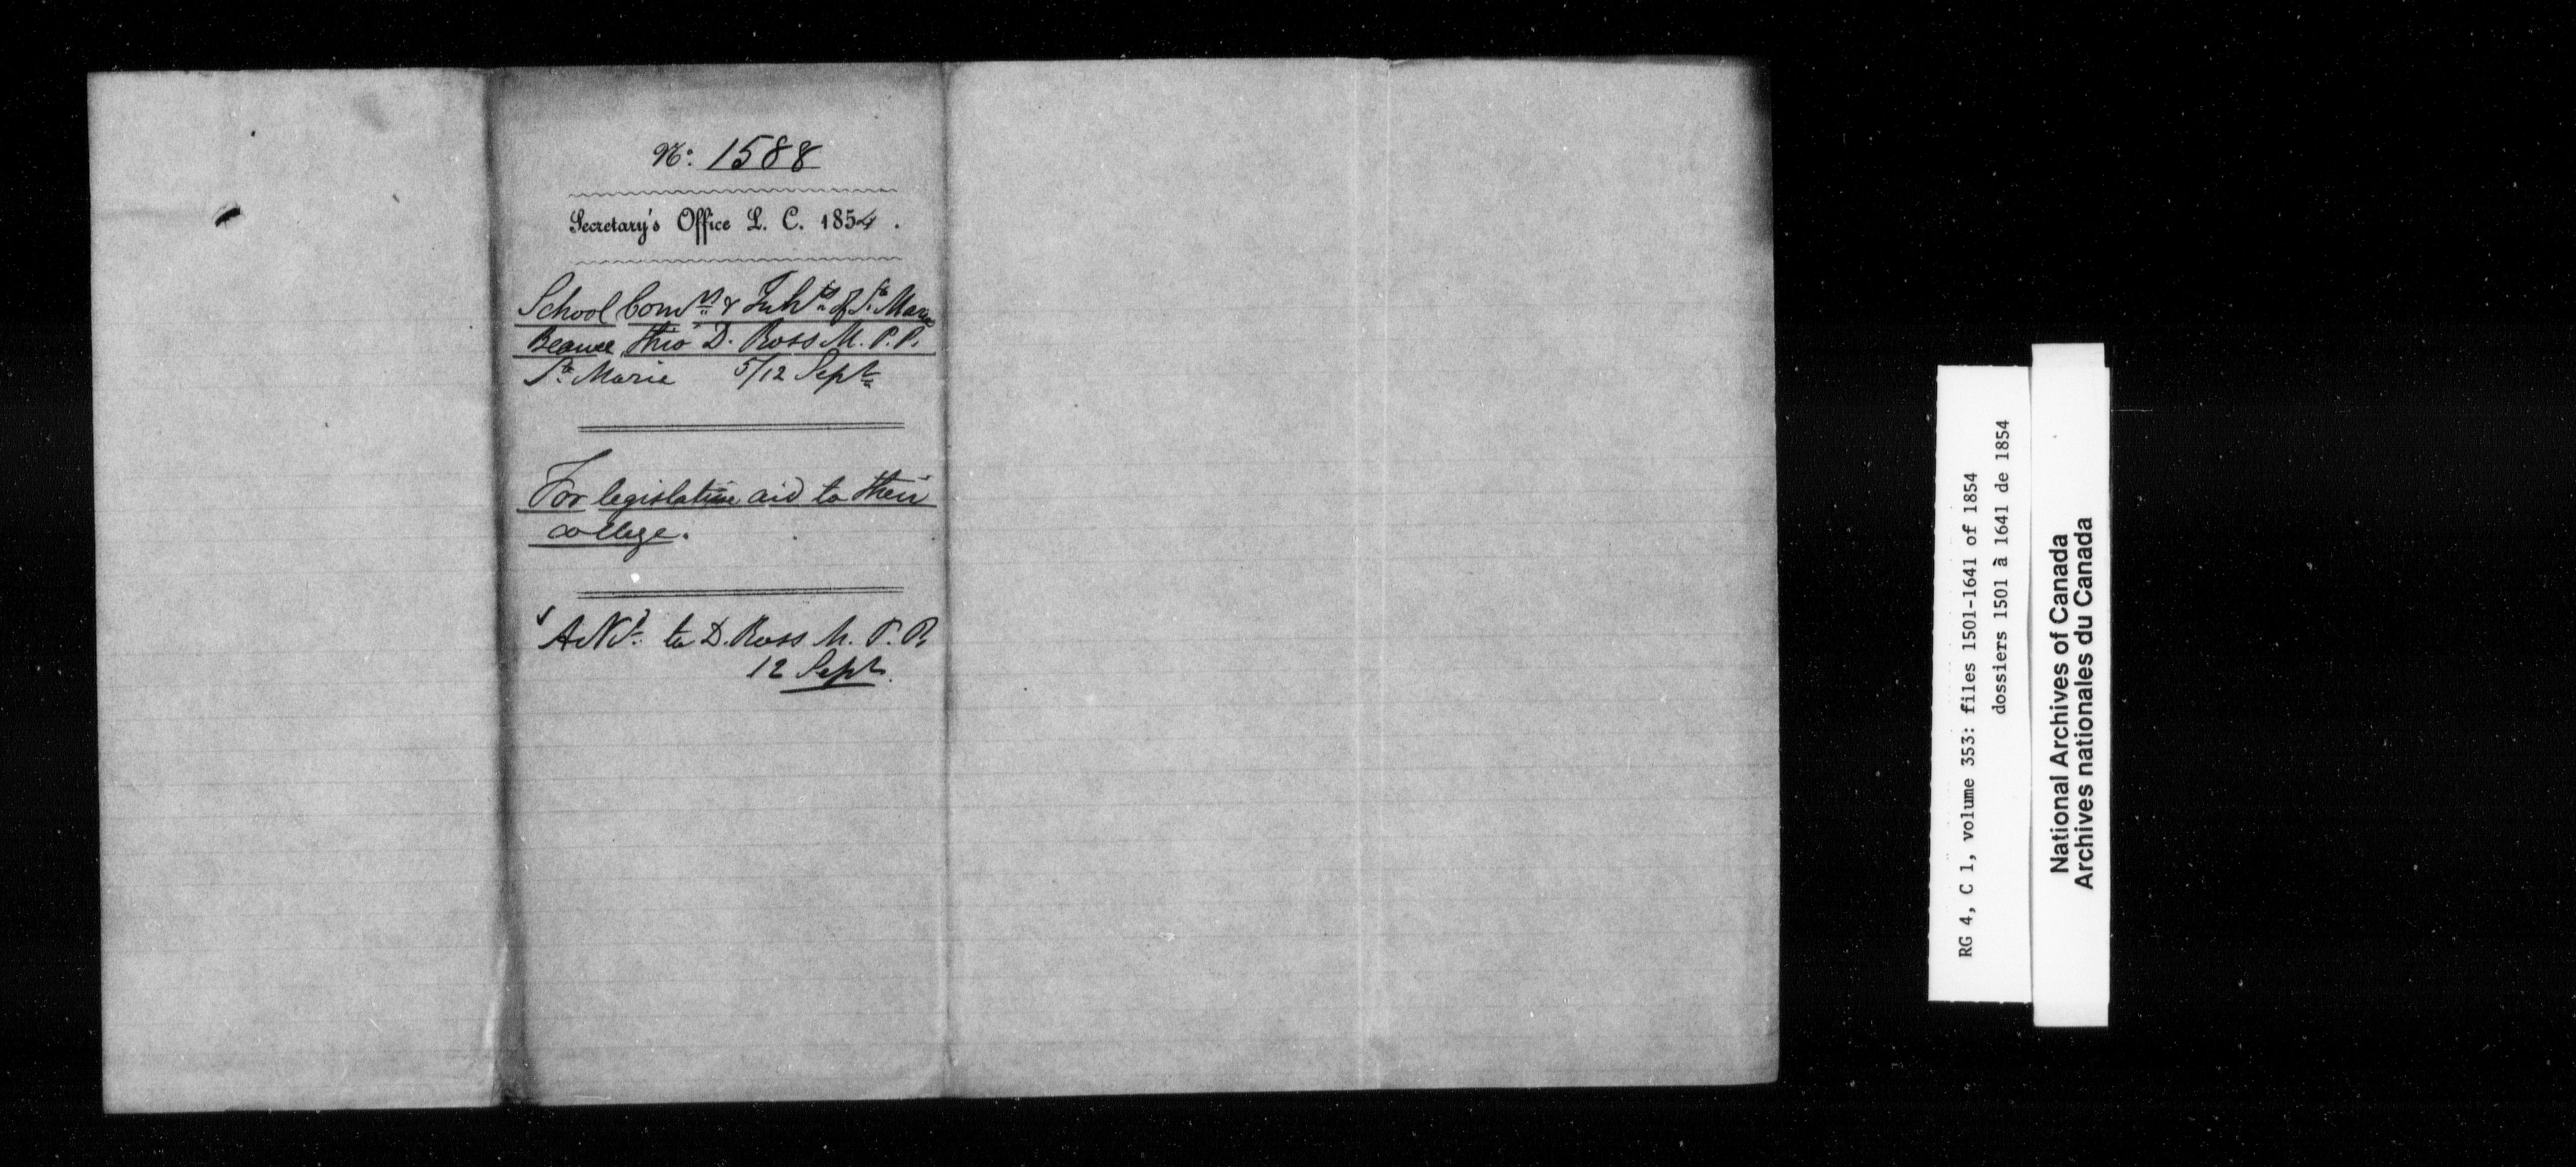 No. 1588
Secretary's Office L. C. 1854.
School Comrs & Inhts of Ste Marie
Beauce, thro' D. Ross M. P. P.
Ste Marie 5/12 Septr
For legislative aid to their
college.
to D. Ross M. P. P.
12 Sept.
RG 4, C 1, volume 353: files 1501-1641 of 1854
dossiers 1501 à 1641 de 1854
National Archives of Canada
Archives nationales du Canada